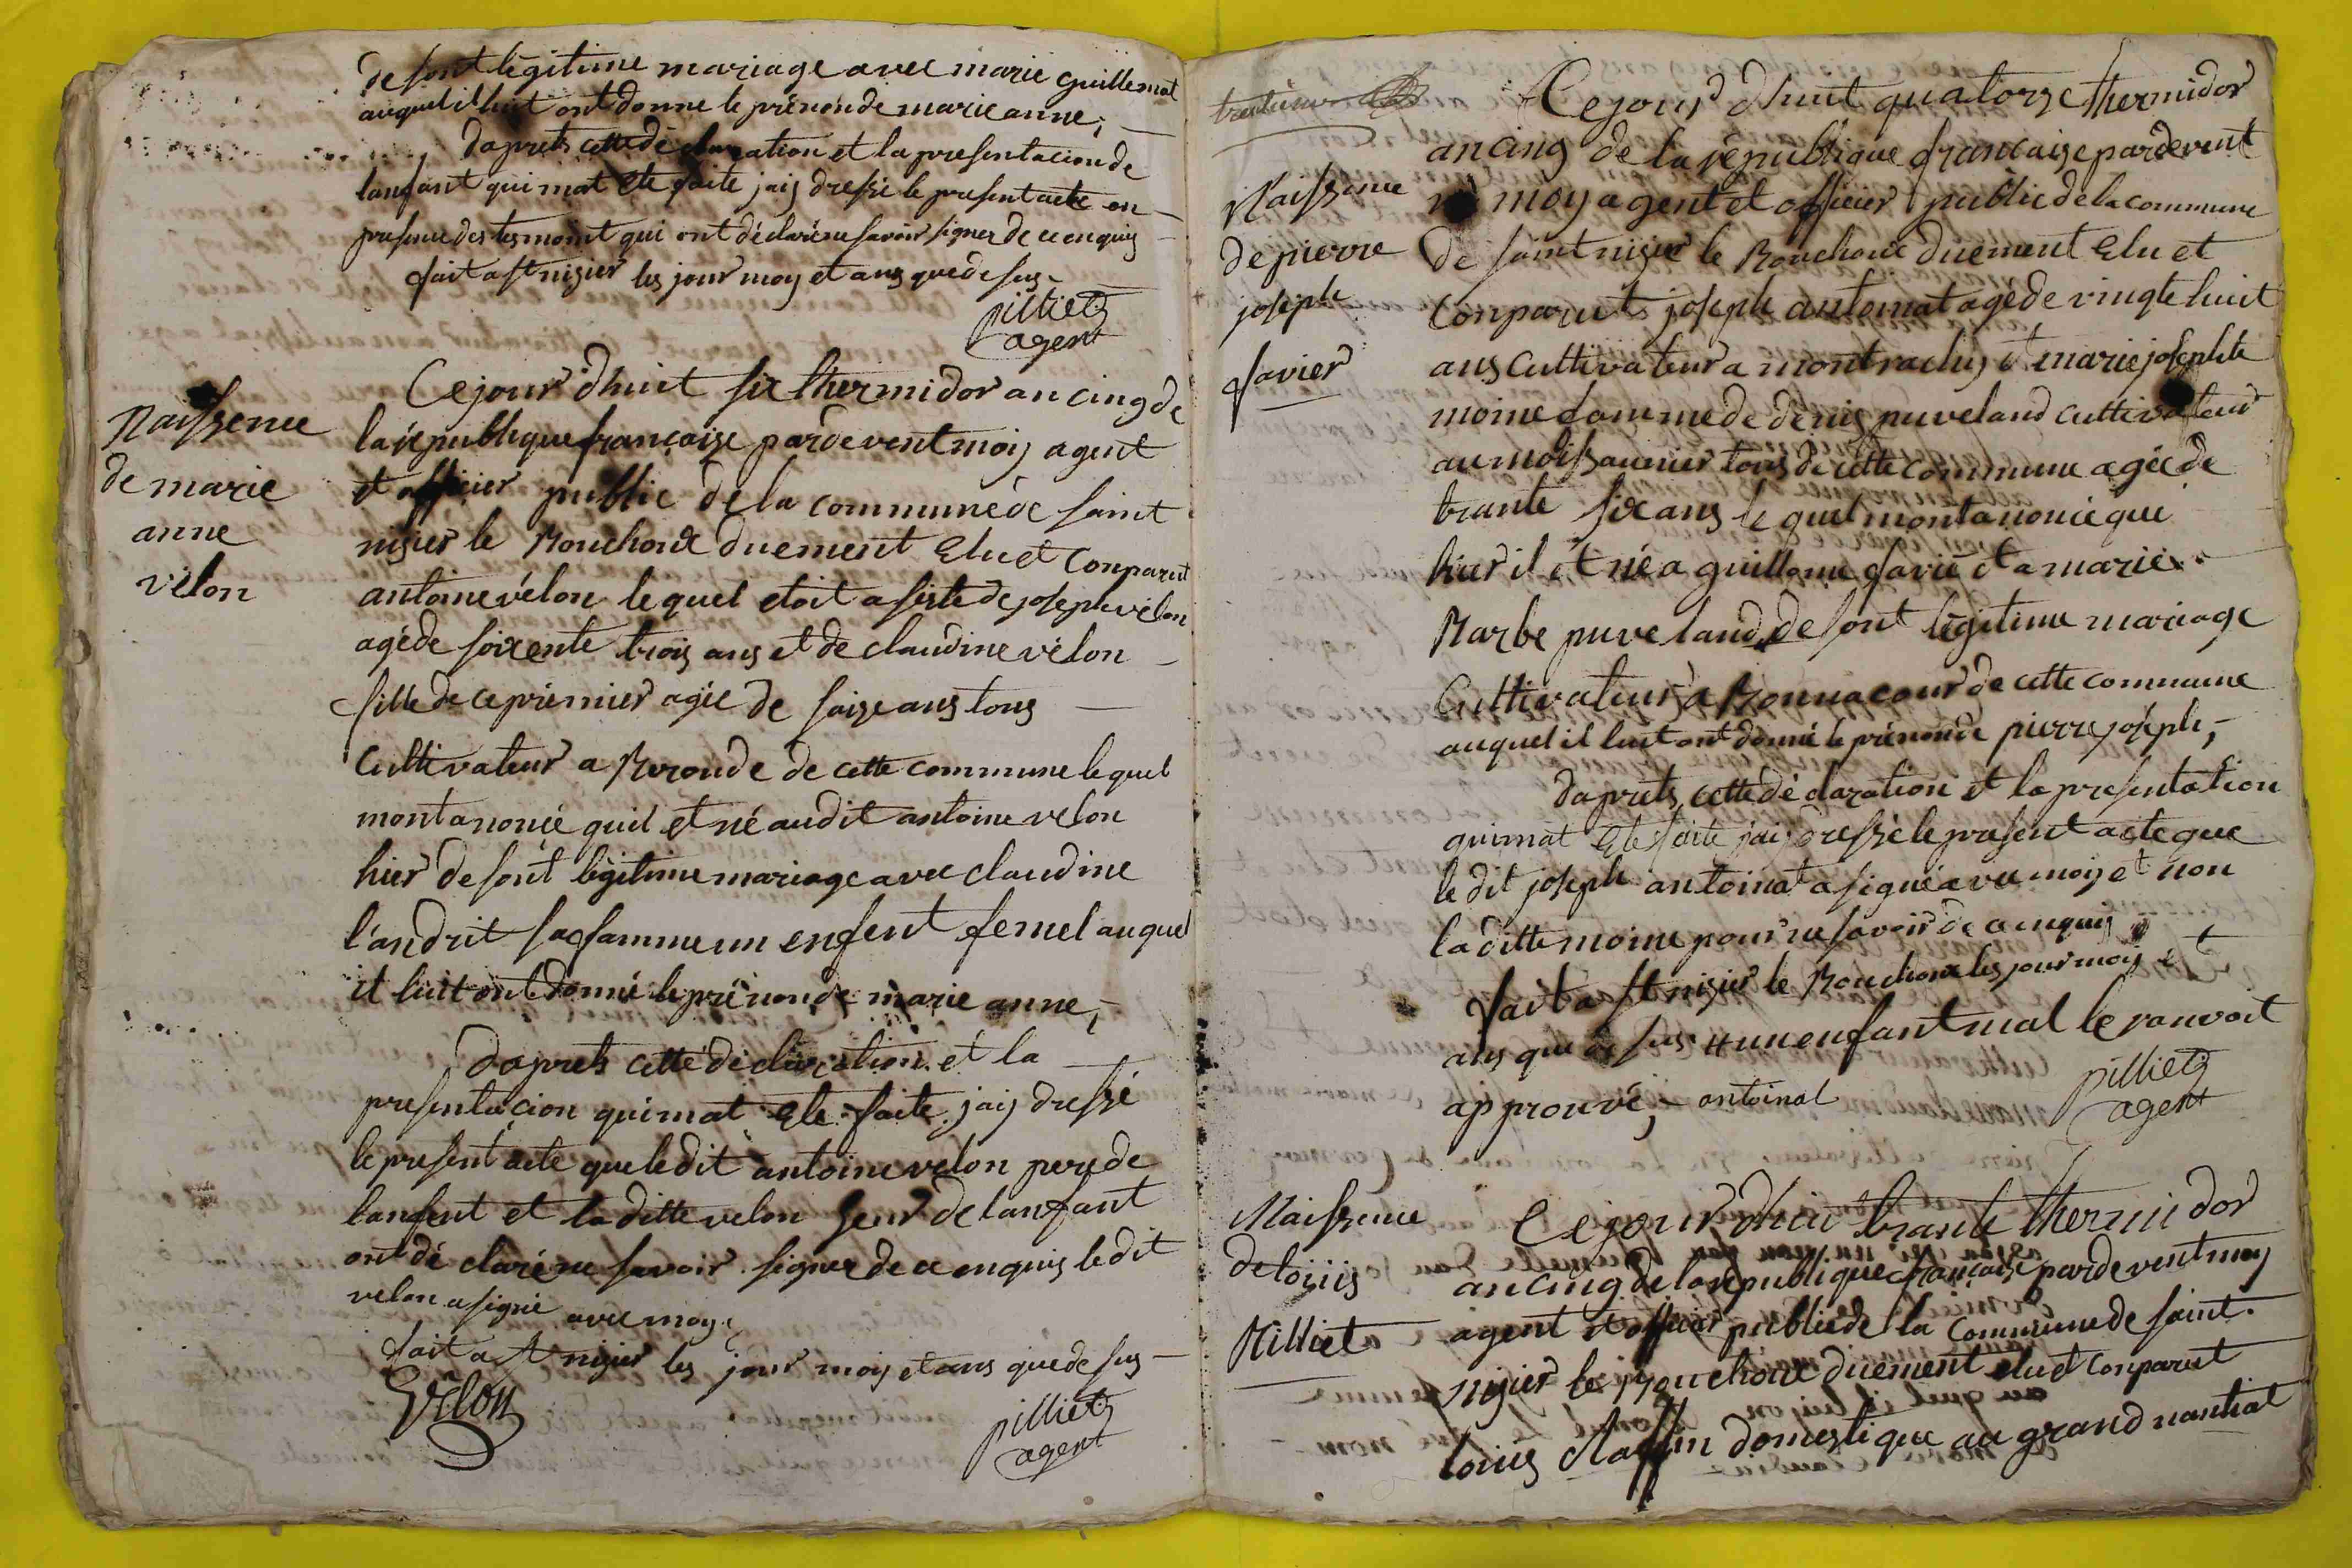 de sont légitime mariage avec marie guillemat
auquel il luit ont donne le prénon de marie anne,
daprets cette dé claration et la presentacion de
lanfant qui mat ete faite jaij dressé le present acte en
presence des tesmoint qui ont déclaré ne savoir signer de ce enquis
fait a st nizier les jour moy et ans que de sus
pilliet
agent
Naissence
de marie
anne
vélon
Ce jour dhuit six thermidor an cinq de
la république françaize pardevent moij agent
et officier public de la commune de saint
nizier le Bouchoux duement Elu et Conparut
antoine vélon lequel etoit asiste de joseph vélon
agé de soixente trois ans et de claudine vélon
fille de ce prémier agée de saize ans tous
Cultivateur a Beronde de cette commune lequel
mont anoncé quil et né audit antoine velon
hier de sont légitime mariage avec claudine
landrit sa famme un enfent femel auquel
il luit ont donné le prénon de marie anne,
daprets cette déclaration et la
presentacion qui mat Ete faite jaij dressé
le present acte que ledit antoine velon pere de
lanfent et la ditte velon seur de lanfant
ont dé claré ne savoir signer de ce enquis le dit
velon a signé avec moy
fait a st nizier les jour moij et ans que de sus
Vélon
pilliet
agent
Naissence
de pierre
joseph
favier
Ce jour dhuit quatorze thermidor
an cinq de la république francaize pardevent
moy agent et officier public de la commune
de saint nizier le Bouchoux duement Elu et
Conparut joseph antoinat agé de vingte huit
ans Cultivateur a montrachy et marie josephte
moine famme de denis puveland cultivateur
au moissonier tous de cette commune agée de
trante six ans le quel mont anoncé que
hier il et né a guillaume favié et a marie
Barbe puveland de sont légitime mariage
Cultivateur a Bonnacour de cette commune
auquel il luit ont donné le prénon de pierre joseph,
daprets cette dé claration et la presentation
qui mat Ete faite jaij dressé le present acte que
le dit joseph antoinat a signé avec moij et non
la ditte moine pour ne savoir de ce enquis
fait a st nizier le Bouchoux les jour moij et
ans que de sus # un enfant mal le ranvoit
approuvé, antoinat
pilliet
agent
Naissence
de loiiis
Milliet
Ce jour dhui trante thermidor
an cinq de la republique françaize pardevent moy
agent et officier public de la Commune de saint
nizier le Bouchoux duement elu et Conparut
loiiis domestique au grand nantiat